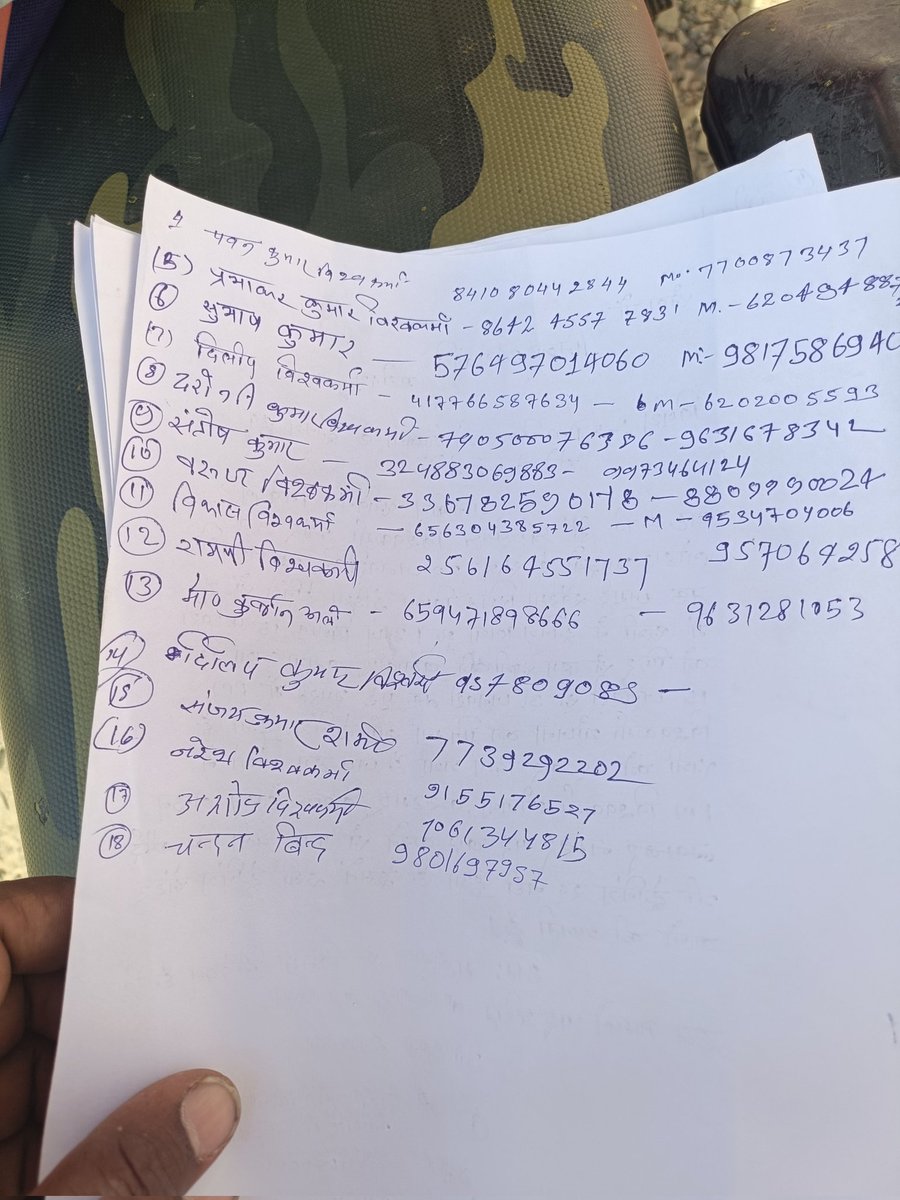 पवन कुमार विश्वकर्मा 841080442844 Mo: 7700873437
(5) प्रभाकर कुमार विश्वकर्मा - 8642 4557 7831 M. - 620494887
(6) सुभाष कुमार — 576497014060 M:- 981758694
(7) दिलीप विश्वकर्मा - 417766587634 - M - 6202005593
(8) कुमार विश्वकर्मा - 9631678342
(9) संतोष कुमार - 324883069883 - 9973464124
(10) वरुण विश्वकर्मा - 336782590178 -
(11) विकास विश्वकर्मा - 656304385722 - M - 9534704006
(12) रामजी विश्वकर्मा 256164551737 957064258
(13) मो० - 659471898666 - 9631281053
(14) दिलीप कुमार 957809083 -
(15) संजय कुमार शर्मा 7739292202
(16) नरेश विश्वकर्मा 9155176527
(17) अशोक विश्वकर्मा 7061344815
(18) चन्दन बिन्द 9801697957